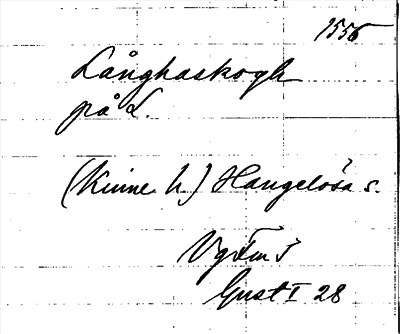 1556
Långhaskogh
på L.
(Kinne h.) Hangelösa s.
VgFmT
Gust I 28